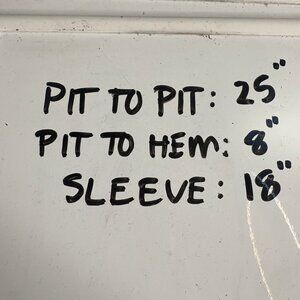 PIT TO PIT: 25"
PIT TO HEM: 8"
SLEEVE: 18"